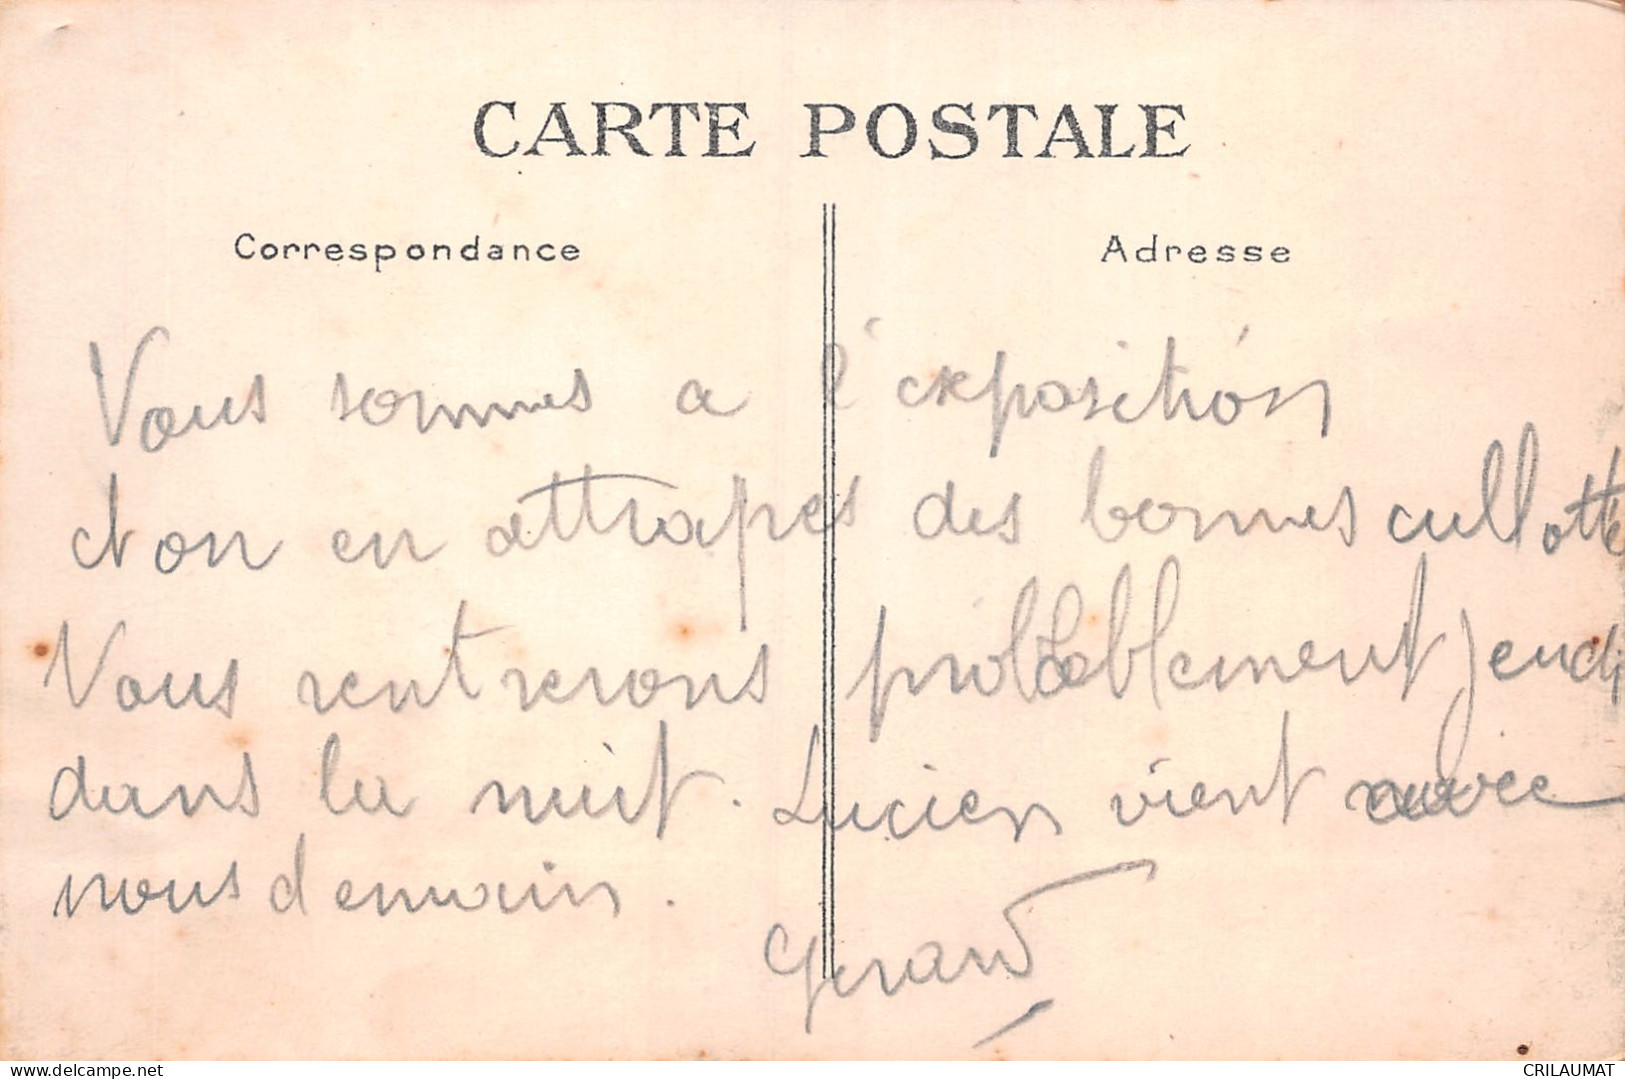 CARTE POSTALE
Correspondance
Adresse
Nous sommes a l'exposition
et on en attrapes des bonnes cullotte
Nous rentrerons probablement jeudi
dans la nuit. Lucien vient avec
nous demain.
Gerard
www.delcampe.net
CRILAUMAT